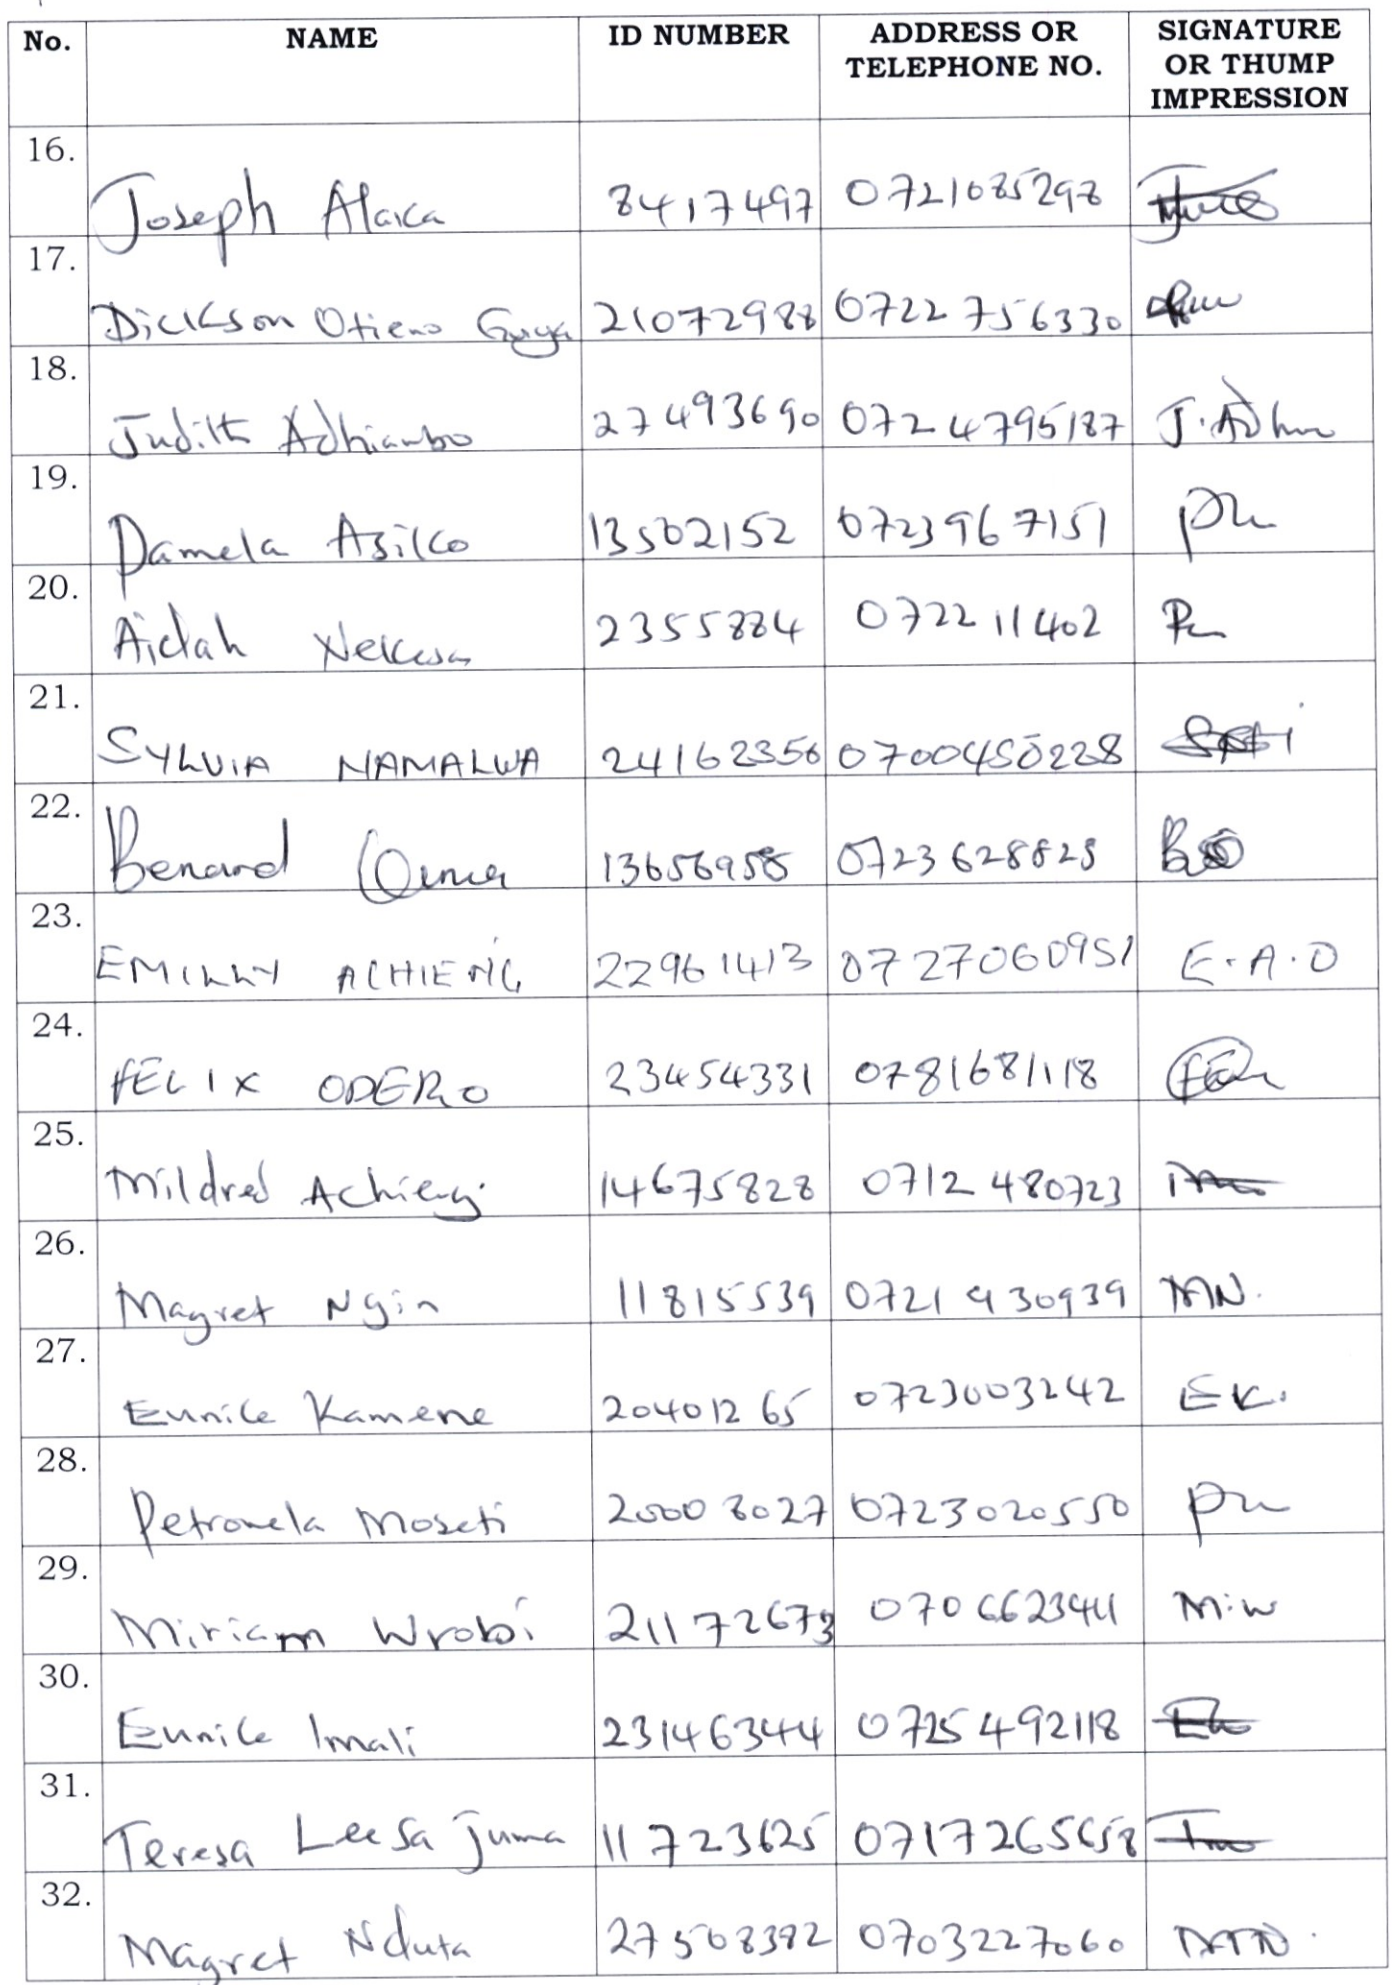 No. NAME ID NUMBER ADDRESS OR TELEPHONE NO. SIGNATURE OR THUMP IMPRESSION
16. Joseph Alaka 8417497 0721085298
17. Dickson Otieno 21072988 0722756330
18. Judith Adhiambo 27493690 0724795187 J. Adh
19. Pamela Asiko 13502152 0723967151
20. Aidah Nekesa 2355884 072211402
21. SYLVIA NAMALWA 24162356 0700450228
22. Benard Ouma 13656958 0723628828
23. EMILLY ACHIENG 22961413 0727060951 E.A.O
24. FELIX ODERO 23454331 0781681118
25. Mildred Achieng 14675828 0712 480723
26. Magret Ngin 11815539 0721930939 MN.
27. Eunice Kamene 20401265 0723003242 EK.
28. Petronela Moseti 20008027 0723020550
29. Miriam Wrobi 21172673 0706623441 M.W
30. Eunice Imali 23146344 0725492118
31. Teresa Leesa Juma 11723625 0717265658
32. Magret Nduta 27508392 0703227060